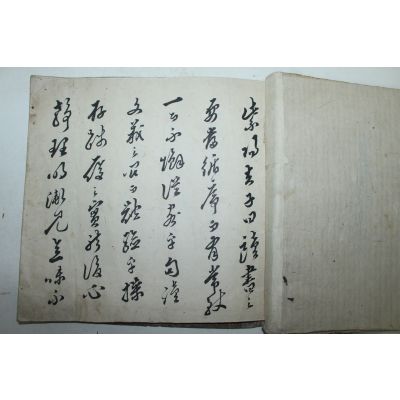 紫陽夫子曰讀書之
要當循序而有常致
一而不懈從容乎句讀
文義之間而體驗乎操
存踐履之實然後心
靜理明漸見意味不